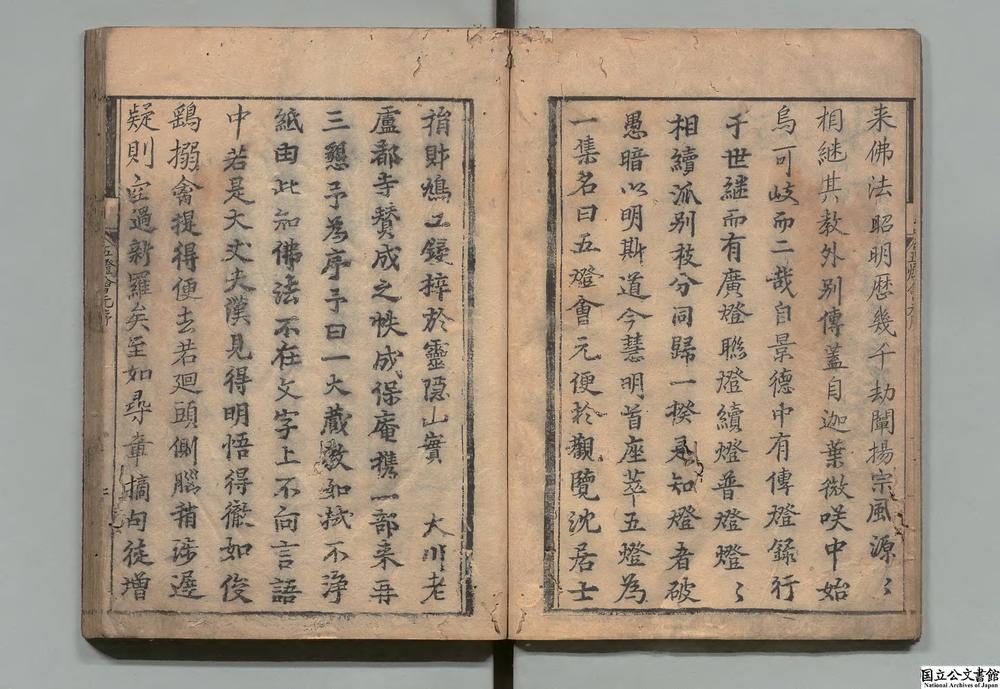 来佛法昭明歴幾千劫闡揚宗風源〻
相継其教外别傳蓋自迦葉微咲中始
烏可岐而二哉自景德中有傳燈録行
于世継而有廣燈聯燈續燈普燈燈〻
相續派别枝分同歸一揆是知燈者破
愚暗以明斯道今慧明首座萃五燈為
一集名曰五燈會元便於觀覽沈居士
五燈會元序
捐財鳩工鋟梓於靈隠山實 大川老
盧都寺賛成之帙成保庵携一部来再
三懇予為序予曰一大藏教如拭不浄
紙由此知佛法不在文字上不向言語
中若是大丈夫漢見得明悟得徹如俊
鷂搦禽提得便去若廻頭側腦稍涉遲
疑則空過新羅矣至如尋章摘句徒增
国立公文書館
National Archives of Japan